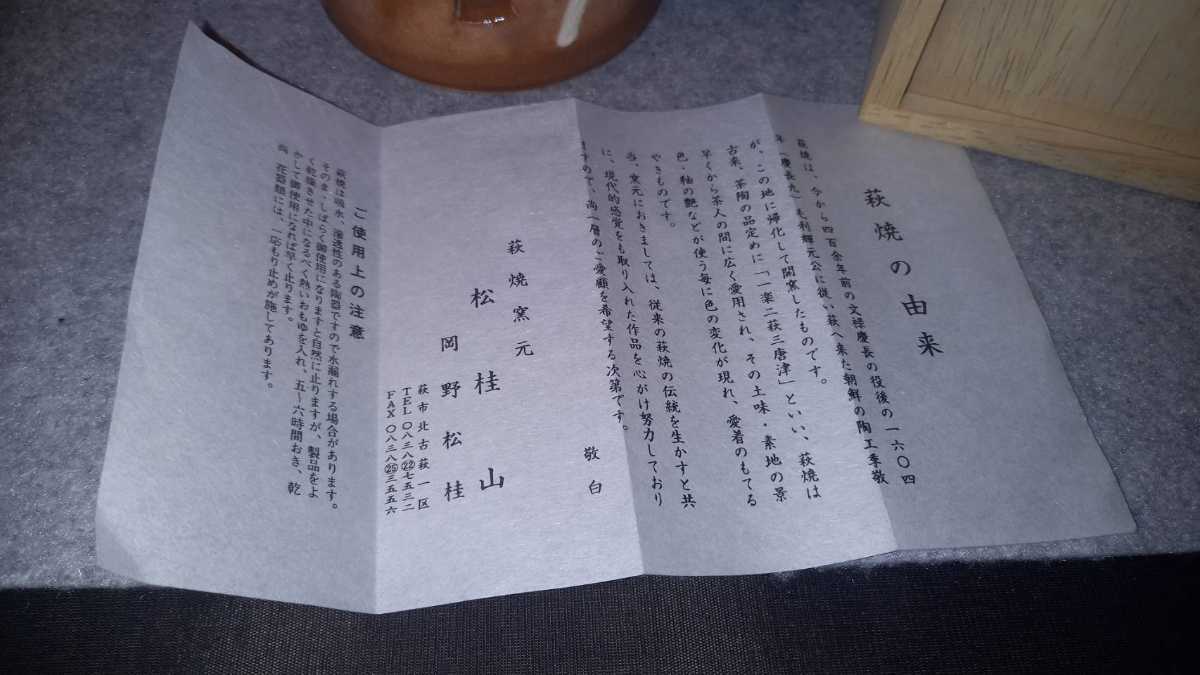 萩焼の由来
萩焼は、今から四百余年前の文禄慶長の役後の一六〇四
年（慶長九）毛利輝元公に従い萩へ来た朝鮮の陶工李敬
が、この地に帰化して開窯したものです。
古来、茶陶の品定めに「一楽二萩三唐津」といい、萩焼は
早くから茶人の間に広く愛用され、その土味・素地の景
色・釉の艶などが使う毎に色の変化が現れ、愛着のもてる
やきものです。
当、窯元におきましては、従来の萩焼の伝統を生かすと共
に、現代的感覚をも取り入れた作品を心がけ努力しており
ますので、尚一層のご愛顧を希望する次第です。
敬白
萩焼窯元
松桂山
岡野松桂
萩市北古萩一区
TEL 〇八三八㉒七五三二
FAX 〇八三八㉕三五五六
ご使用上の注意
萩焼は吸水、浸透性のある陶器ですので水漏れする場合があります。
そのまゝしばらく御使用になりますと自然に止りますが、製品をよ
く乾燥させた中になるべく熱いおもゆを入れ、五〜六時間おき、乾
かして御使用になれば早く止ります。
尚、花器類には、一応もり止めが施してあります。